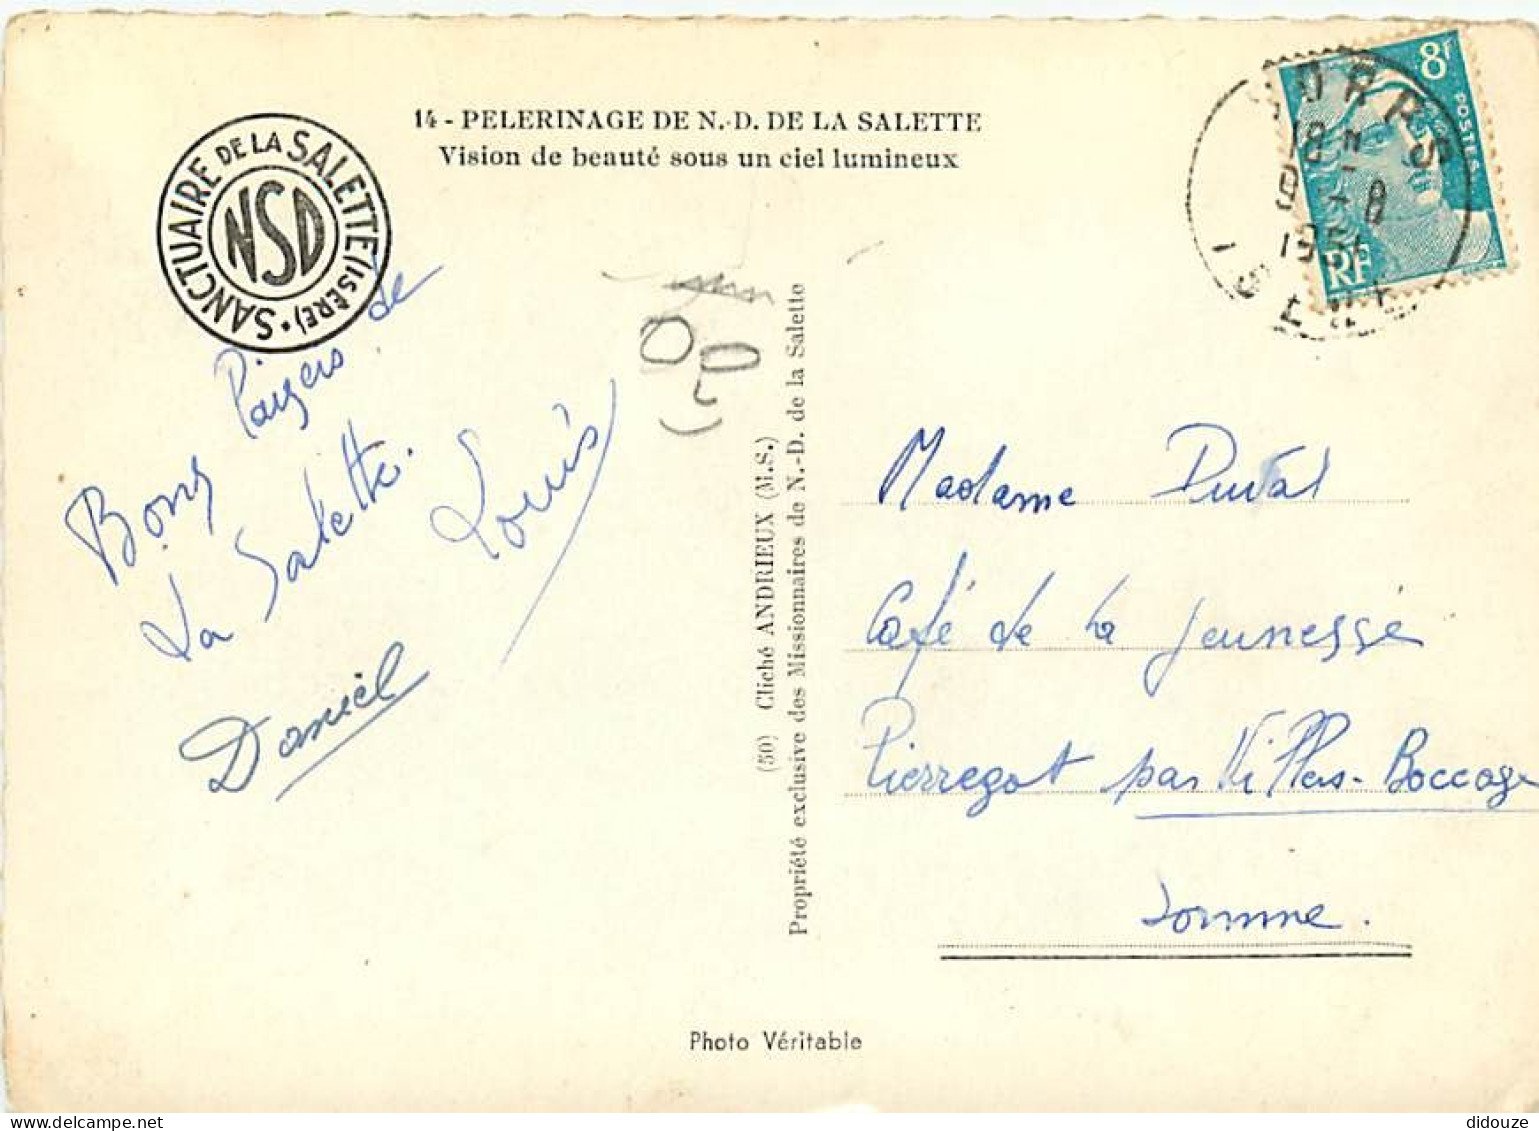 14 - PELERINAGE DE N.-D. DE LA SALETTE
Vision de beauté sous un ciel lumineux
SANCTUAIRE DE LA SALETTE (ISÈRE).
NSD
8f
POSTES
RF
CORPS
18 H
9 - 8
ISERE
Bons
de
La Salette.
Louis
Daniel
(50) Cliché ANDRIEUX (M.S.)
Propriété exclusive des Missionnaires de N.-D. de la Salette
Madame Duval
Café de la Jeunesse
Pierregot par Villers-Boccage
Somme.
Photo Véritable
didouze